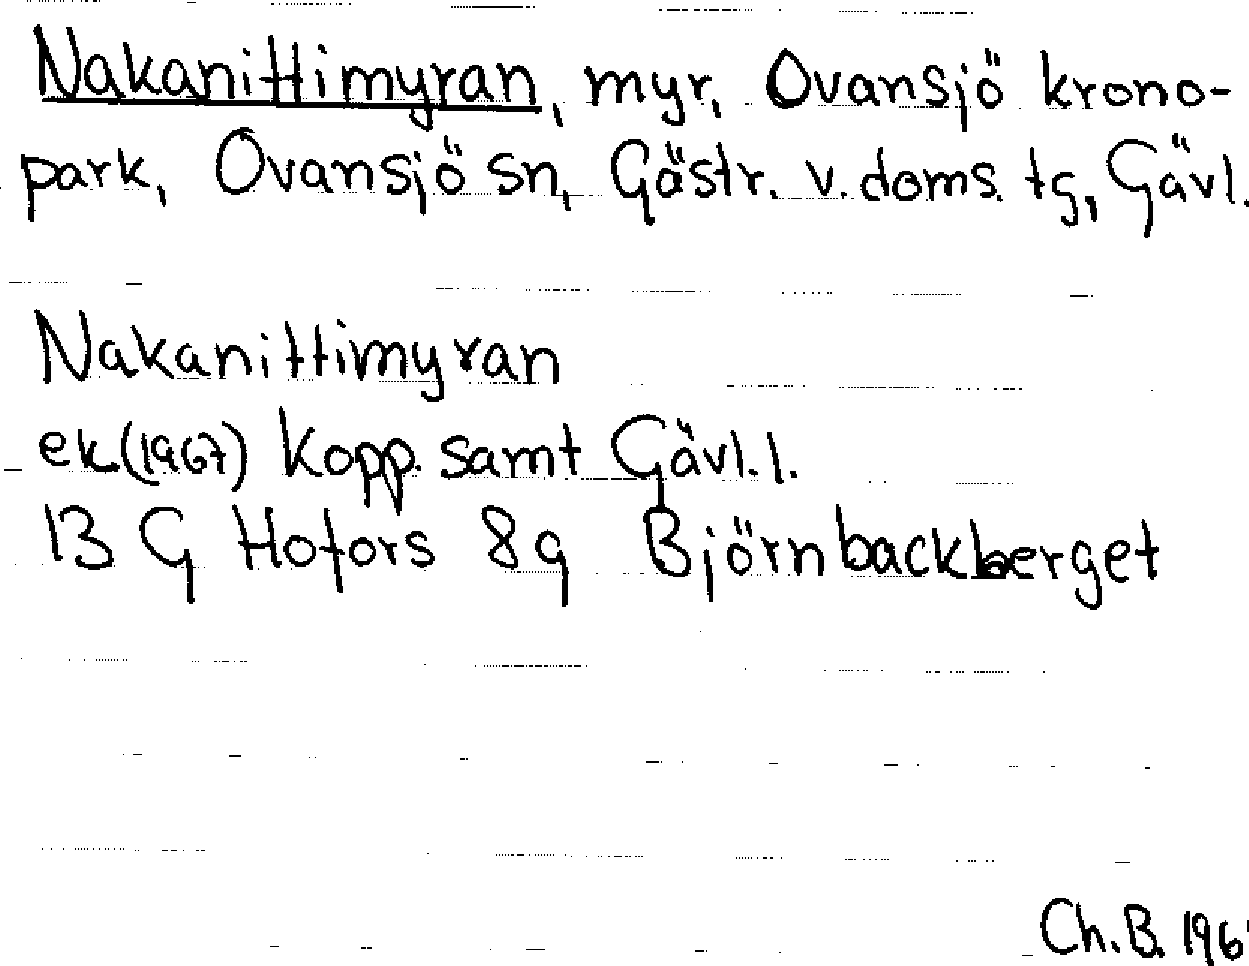 Nakanittimyran, myr, Ovansjö krono-
park, Ovansjö sn, Gästr. v. doms. tg, Gävl.
Nakanittimyran
ek (1967) Kopp. samt Gävl. l.
13 G Hofors 8g Björnbackberget
Ch. B.